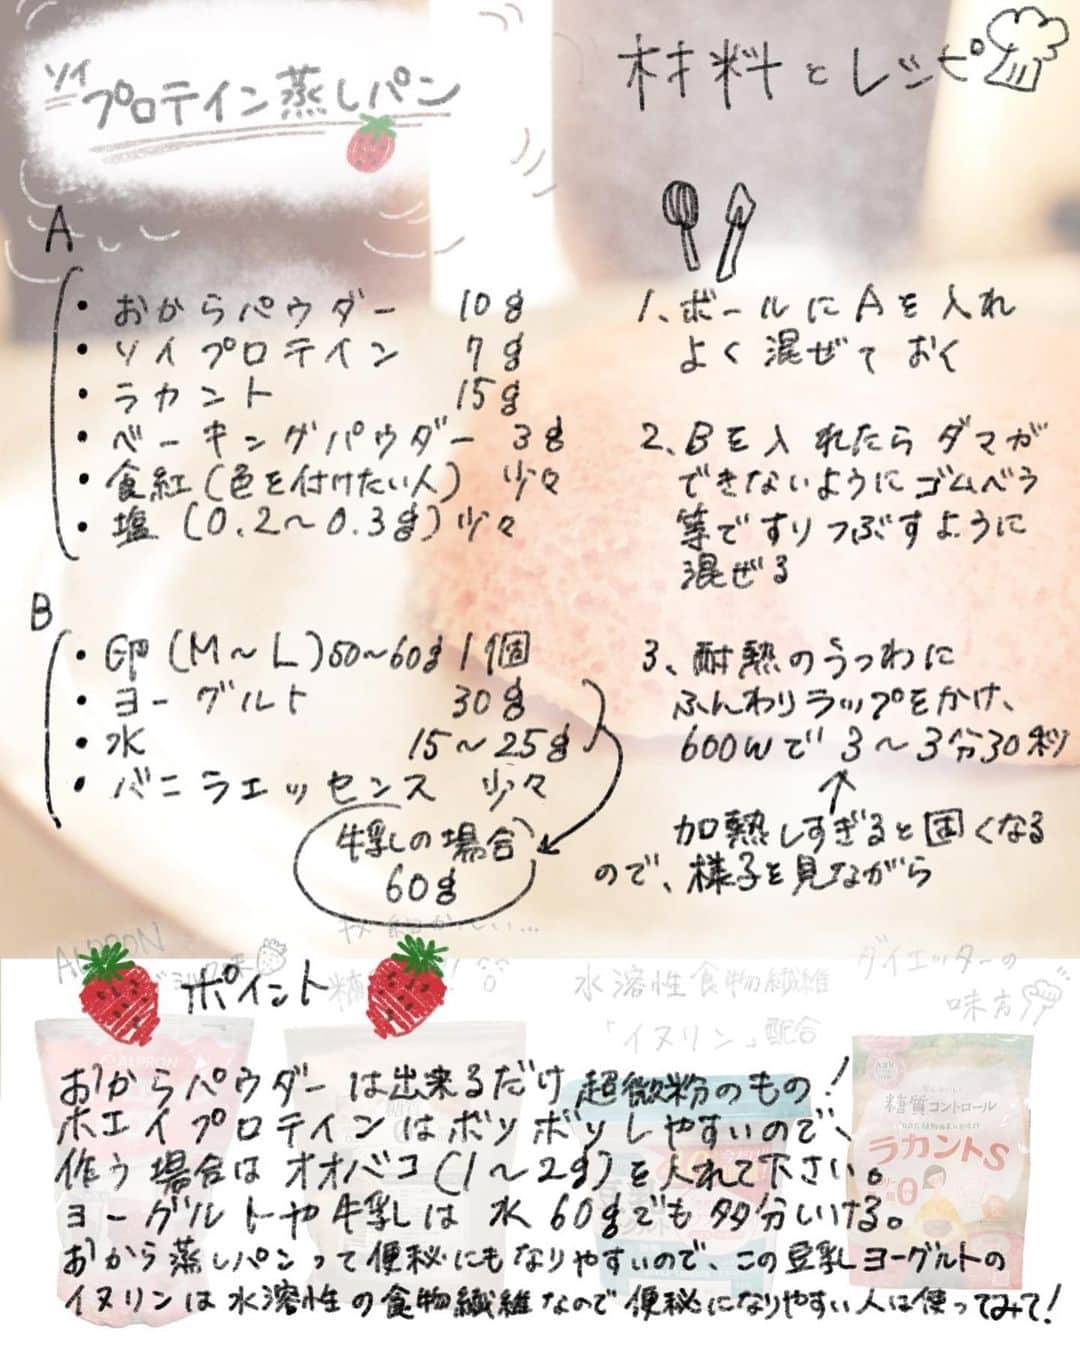 ソイ
プロテイン蒸しパン
材料とレシピ
A
・おからパウダー 10g
・ソイプロテイン 7g
・ラカント 15g
・ベーキングパウダー 3g
・食紅(色を付けたい人) 少々
・塩(0.2〜0.3g)少々
B
・卵(M〜L)50〜60g 1個
・ヨーグルト 30g
・水 15〜25g
・バニラエッセンス 少々
牛乳の場合
60g
1、ボールにAを入れ
よく混ぜておく
2、Bを入れたらダマが
できないようにゴムベラ
等ですりつぶすように
混ぜる
3、耐熱のうつわに
ふんわりラップをかけ、
600wで3〜3分30秒
加熱しすぎると固くなる
ので、様子を見ながら
ALPRON
水溶性食物繊維
「イヌリン」配合
ダイエッターの
味方
ポイント
おからパウダーは出来るだけ超微粉のもの!
ホエイプロテインはボソボソしやすいので、
作う場合はオオバコ(1〜2g)を入れて下さい。
ヨーグルトや牛乳は水60gでも多分いける。
おから蒸しパンって便秘にもなりやすいので、この豆乳ヨーグルトの
イヌリンは水溶性の食物繊維なので便秘になりやすい人は使ってみて!
ALPRON
糖質コントロール
ラカントS
0